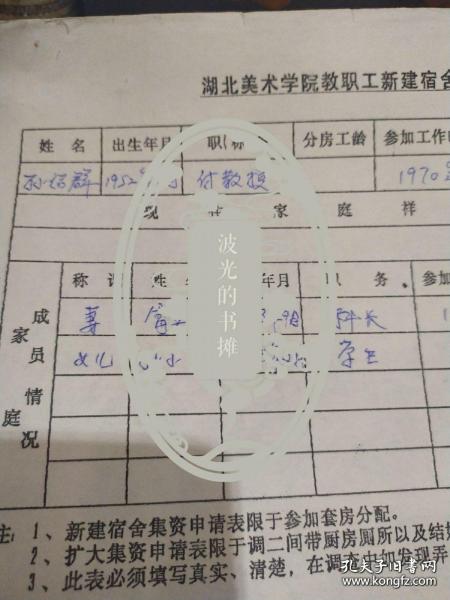 湖北美术学院教职工新建宿舍
姓名 出生年月 职称 分房工龄 参加工作时
孙绍群 1952年 付教授 1970年
现在家庭详
家庭成员情况
称谓 姓 年月 职务 参加
妻 科长
女儿 学生
注：1、新建宿舍集资申请表限于参加套房分配。
2、扩大集资申请表限于调二间带厨房厕所以及结婚
3、此表必须填写真实、清楚，在调查中如发现弄
波光的书摊
孔夫子旧书网